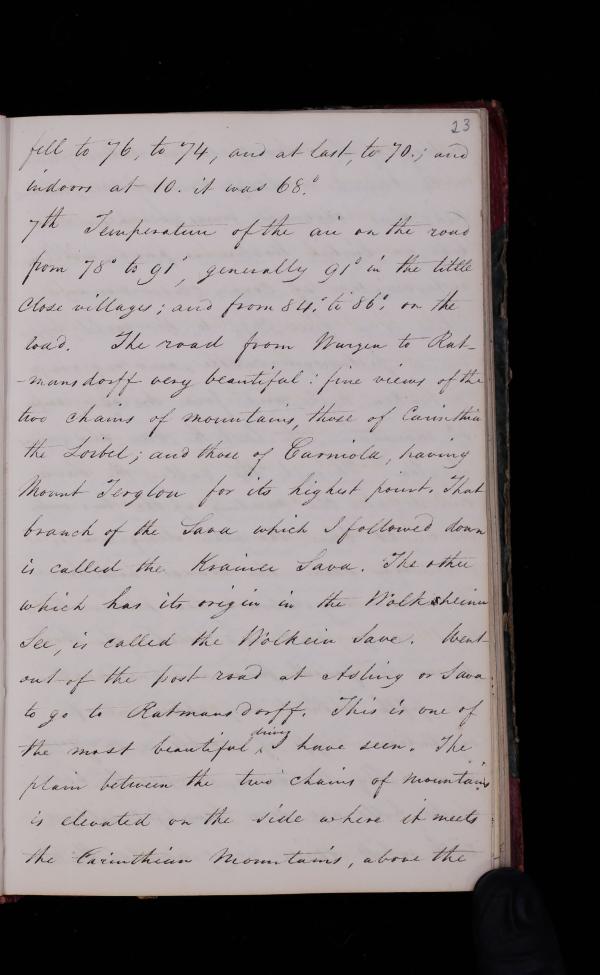 23
fell to 76, to 74, and at last, to 70.; and
indoors at 10. it was 68.°
7th Temperature of the air on the road
from 78° to 91°, generally 91° in the little
close villages; and from 84.° to 86°. on the
road. The road from Wurzen to Rat-
-mansdorff very beautiful: fine views of the
two chains of mountains, those of Carinthia
the Loibel; and those of Carniola, having
Mount Terglou for its highest point. That
branch of the Sava which I followed down
is called the Krainer Sava. The other
which has its origin in the
See, is called the Save. Went
out of the post road at Asling or Sava
to go to Ratmansdorff. This is one of
the most beautiful drives I have seen. The
plain between the two chains of mountains
is elevated on the side where it meets
the Carinthian Mountains, above the